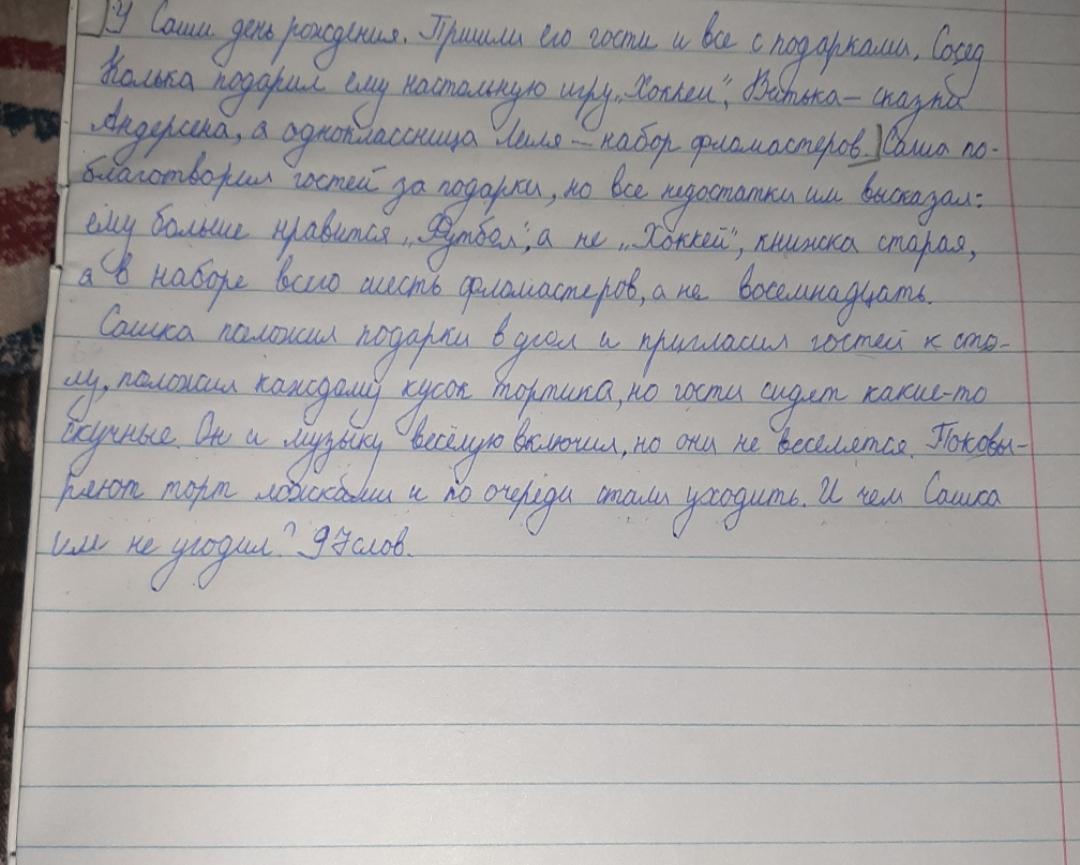 ] У Саши день рождения. Пришли его гости и все с подарками. Сосед
Колька подарил ему настольную игру „Хоккей", Витька – сказки
Андерсена, а одноклассница Леля – набор фломастеров.] Саша по-
благотворил гостей за подарки, но все недостатки им высказал:
ему больше нравится „Футбол", а не „Хоккей", книжка старая,
а в наборе всего шесть фломастеров, а не восемнадцать.
Сашка положил подарки в угол и пригласил гостей к сто-
лу, положил каждому кусок тортика, но гости сидят какие-то
скучные. Он и музыку весёлую включил, но они не веселятся. Поковы-
ряют торт ложками и по очереди стали уходить. И чем Сашка
им не угодил? 97 слов.